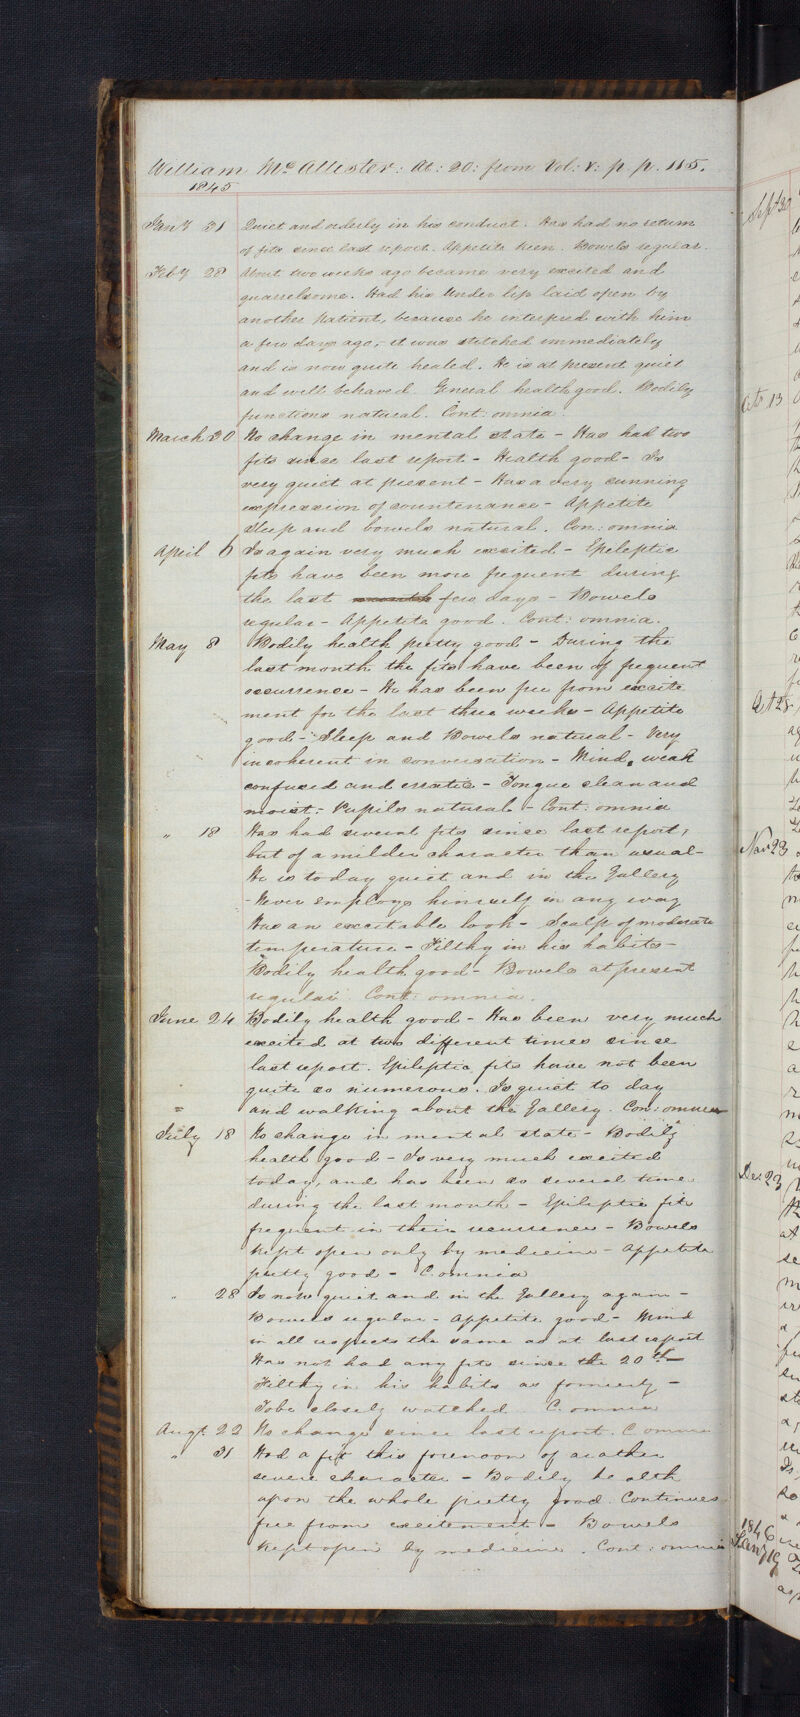 William McAllister: At: 20: from Vol: V: p. p. 115.
1845
Jany 31 Quiet and orderly in his conduct. Has had no return
of fits since last report. Appetite keen. Bowels regular.
Feby 28 About two weeks ago became very excited and
quarrelsome. Had his Under lip laid open by
another patient, because he interfered with him
a few days ago, it was stitched immediately
and is now quite healed. He is at present quiet
and well behaved. General health good. Bodily
functions natural. Cont: omnia.
March 30 No change in mental state - Has had two
fits since last report - Health good - Is
very quiet at present - Has a very cunning
expression of countenance - Appetite
sleep and bowels natural. Con: omnia
April 6 Is again very much excited - Epileptic
fits have been more frequent during
the last month few days - Bowels
regular - Appetite good. Cont: omnia.
May 8 Bodily health pretty good - During the
last month the fits have been of frequent
occurrence - He has been free from excite
ment for the last three weeks - Appetite
good - Sleep and Bowels natural - Very
incoherent in conversation - Mind, weak
confused and erratic - Tongue clean and
moist - Pupils natural - Cont: omnia
" 18 Has had several fits since last report,
but of a milder character than usual -
He is to day quiet and in the Gallery
- Never employs himself in any way
Has an excitable look - Scalp of moderate
temperature - Filthy in his habits -
Bodily health good - Bowels at present
regular. Cont: omnia.
June 24 Bodily health good - Has been very much
excited at two different times since
last report. Epileptic fits have not been
quite so numerous. Is quiet to day
and walking about the Gallery. Con: omnia
July 18 No change in mental state - Bodily
health good - Is very much excited
today, and has been so several time
during the last month - Epileptic fits
frequent in their recurrence - Bowels
kept open only by medicine - Appetite
pretty good - C. omnia
" 28 Is now quiet and in the Gallery again -
Bowels regular - Appetite good - Mind
in all respects the same as at last report
Has not had any fits since the 20th
Filthy in his habits as formerly -
To be closely watched. C. omnia
Augt 22 No change since last report. C omnia
" 31 Had a fit this forenoon of arather
severe character - Bodily health
upon the whole pretty good. Continues
free from excitement - Bowels
kept open by medicine. Cont: omnia
Sept 30
Octr 13
Oct 28
Nov 23
Dec 23
1846
Jany 19